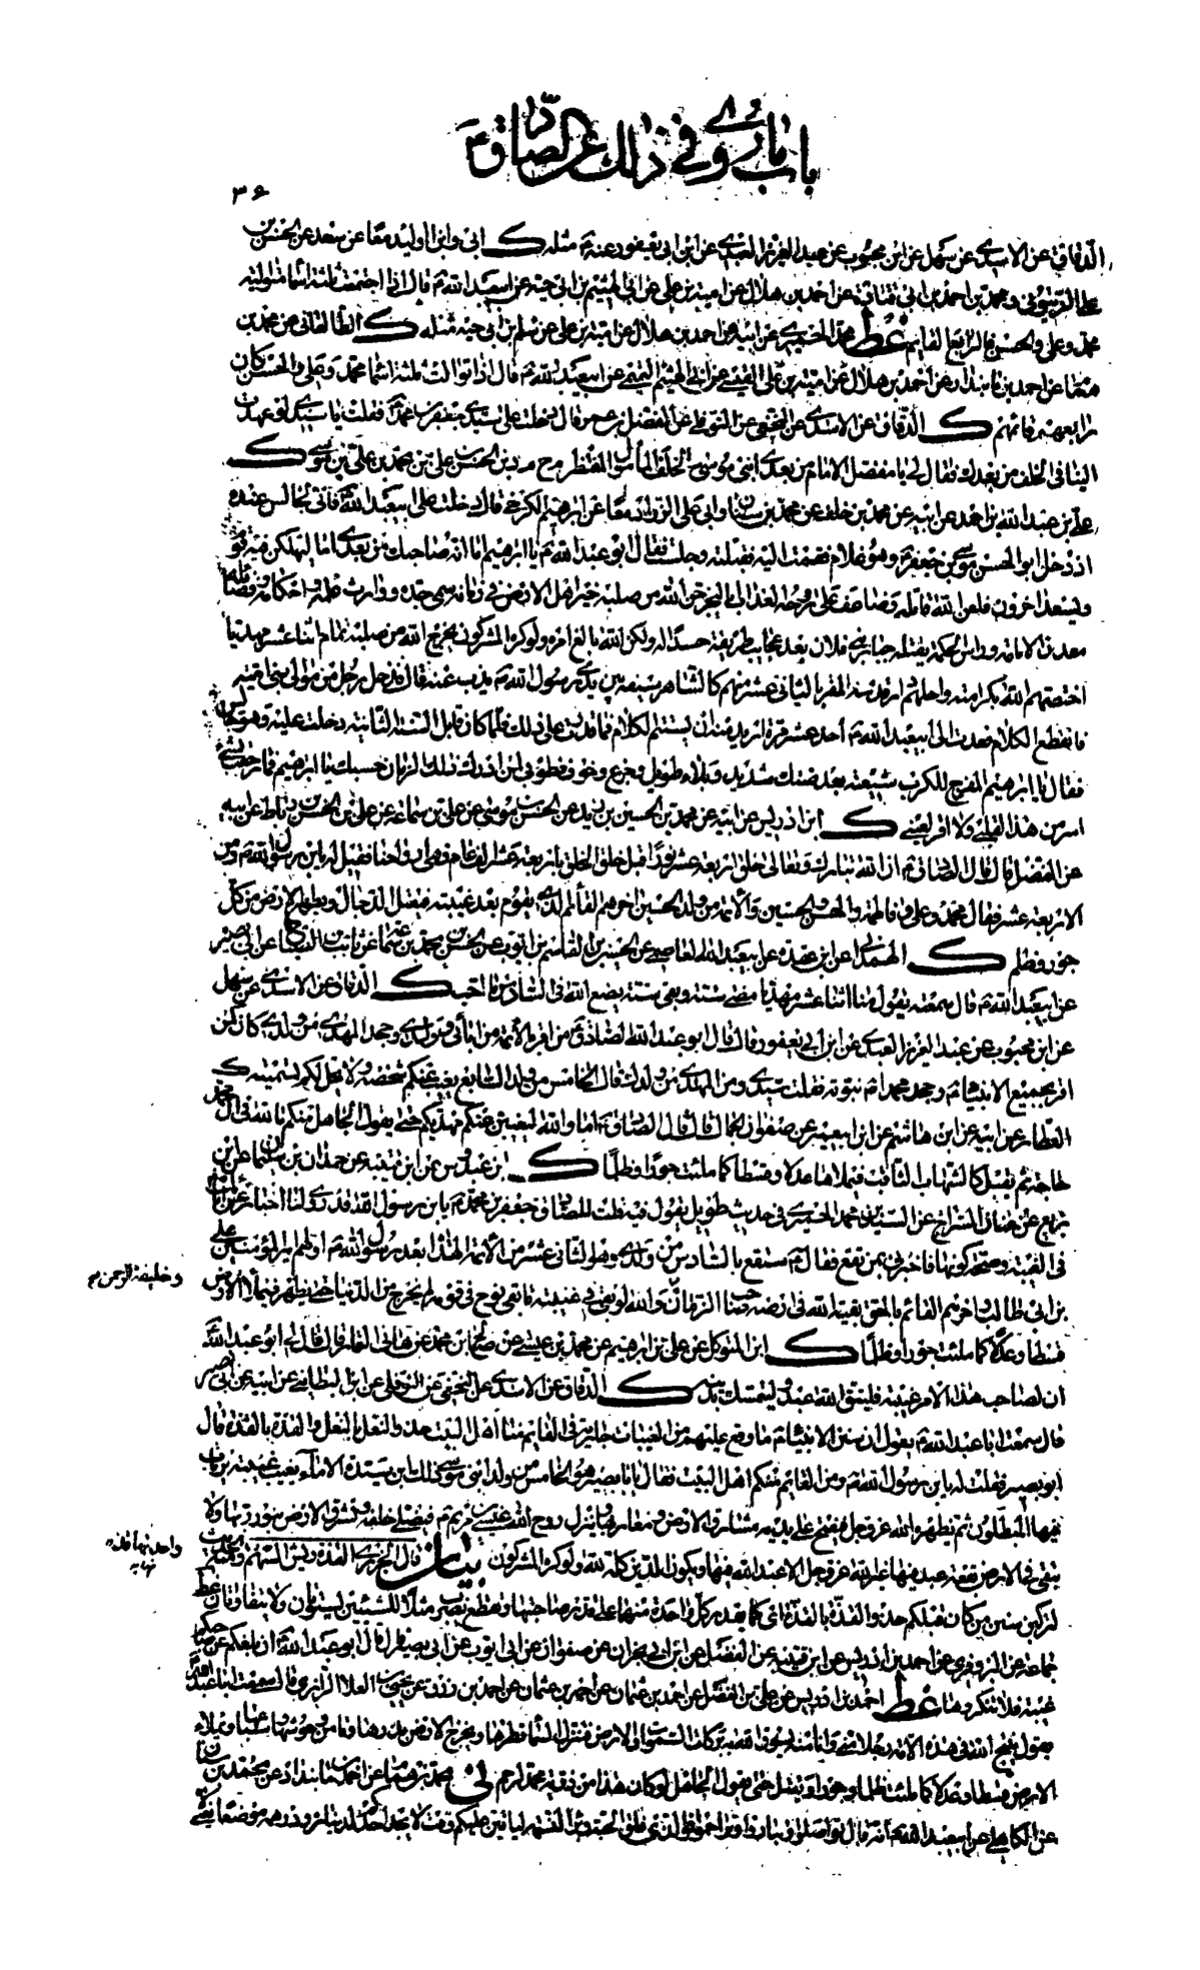 باب ما روي في ذلك عن الصادق ع
٣۶
الدقاق عن الاسدي عن سهل عن ابن محبوب عن عبد العزيز العبدي عن ابن ابي يعفور عنه ع مثله ك ابي وابن الوليد معا عن سعد عن الحسن بن
علي الزيتوني ومحمد بن احمد بن ابي قتادة عن احمد بن هلال عن امية بن علي عن ابي الهيثم بن ابي حية عن ابيعبد الله ع قال اذا اجتمعت ثلثة اسما متوالية
محمد وعلي والحسن فالرابع القائم غط محمد الحميري عن ابيه عن احمد بن هلال عن امية بن علي عن سلم بن ابي حية مثله ك الطالقاني عن محمد بن
همام عن احمد بن مابنداد عن احمد بن هلال عن امية بن علي القيسي عن ابي الهيثم التميمي عن ابيعبد الله ع قال اذا توالت ثلثة اسما محمد وعلي والحسن كان
رابعهم قائمهم ك الدقاق عن الاسدي عن النخعي عن النوفلي عن المفضل بن عمر قال دخلت على سيدي جعفر بن محمد ع فقلت يا سيدي لو عهدت
الينا في الخلف من بعدك فقال لي يا مفضل الامام من بعدي ابني موسى والخلف المأمول المنتظر م ح م د بن الحسن بن علي بن محمد بن علي بن موسى ك
علي بن عبد الله بن احمد عن ابيه عن محمد بن خلف عن محمد بن سنان وابي علي الزراد معا عن ابرهيم الكرخي قال دخلت على ابيعبد الله ع فاني لجالس عنده
اذ دخل ابو الحسن موسى بن جعفر ع وهو غلام فقمت اليه فقبلته وجلست فقال ابو عبد الله ع يا ابرهيم اما انه صاحبك من بعدي اما ليهلكن فيه قوم
ويسعد اخرون فلعن الله قاتله وضاعف على روحه العذاب اما ليخرجن الله من صلبه خير اهل الارض في زمانه سمي جده ووارث علمه واحكامه وقضاياه
معدن الامامة وراس الحكمة يقتله جبار بني فلان بعد عجايب طريفة حسدا له ولكن الله بالغ امره ولو كره المشركون يخرج الله من صلبه تمام اثنا عشر مهديا
اختصهم الله بكرامته واحلهم دار قدسه المقر بالثاني عشر منهم كالشاهر سيفه بين يدي رسول الله ع يذب عنه قال فدخل رجل من موالي بني امية
فانقطع الكلام فعدت الى ابيعبد الله ع احد عشر مرة اريد منه ان يستتم الكلام فما قدرت على ذلك فلما كان قابل السنة الثانية دخلت عليه وهو جالس
فقال يا ابرهيم المفرج للكرب شيعته بعد ضنك شديد وبلاء طويل وجزع وخوف فطوبى لمن ادرك ذلك الزمان حسبك يا ابرهيم فما رجعت بشئ
اسر من هذا لقلبي ولا اقر لعيني ك ابن ادريس عن ابيه عن محمد بن الحسين بن يزيد عن الحسن بن موسى عن علي بن سماعة عن علي بن الحسن بن رباط عن ابيه
عن المفضل قال قال الصادق ع ان الله تبارك وتعالى خلق اربعة عشر نورا قبل خلق الخلق باربعة عشر الف عام فهي ارواحنا فقيل له يابن رسول الله ع ومن
الاربعة عشر فقال محمد وعلي وفاطمة والحسن والحسين والائمة من ولد الحسين اخرهم القائم الذي يقوم بعد غيبته فيقتل الدجال ويطهر الارض من كل
جور وظلم ك الهمداني عن ابن عقدة عن ابيعبد الله العاصمي عن الحسين بن القاسم بن ايوب عن الحسن بن محمد بن سماعة عن ثابت الصباح عن ابي بصير
عن ابيعبد الله ع قال سمعته يقول منا اثنا عشر مهديا مضى ستة وبقي ستة يضع الله في السادس ما احب ك الدقاق عن الاسدي عن سهل
عن ابن محبوب عن عبد العزيز العبدي عن ابن ابي يعفور قال قال ابو عبد الله الصادق ع من اقر بالائمة من ابائي وولدي وجحد المهدي من ولدي كان كمن
اقر بجميع الانبياء ع وجحد محمدا ع نبوته فقلت سيدي ومن المهدي من ولدك قال الخامس من ولد السابع يغيب عنكم شخصه ولا يحل لكم تسميته ك
العطار عن ابيه عن ابن هاشم عن ابن ابي عمير عن صفوان الجمال قال قال الصادق ع اما والله ليغيبن عنكم مهديكم حتى يقول الجاهل منكم ما لله في ال محمد
حاجة ثم يقبل كالشهاب الثاقب فيملاها عدلا وقسطا كما ملئت جورا وظلما ك ابن عبدوس عن ابن قتيبة عن حمدان بن سليمان عن ابن
بزيع عن حنان السراج عن السيد بن محمد الحميري في حديث طويل يقول فيه قلت للصادق جعفر بن محمد ع يابن رسول الله قد روي لنا اخبار عن ابائك
في الغيبة وصحة كونها فاخبرني بمن تقع فقال ع ستقع بالسادس من ولدي وهو الثاني عشر من الائمة الهداة بعد رسول الله ع اولهم امير المؤمنين علي
بن ابي طالب واخرهم القائم بالحق بقية الله في ارضه صاحب الزمان والله لو بقي في غيبته ما بقي نوح في قومه لم يخرج من الدنيا حتى يظهر فيملأ الارض
وخليفة الرحمن م
قسطا وعدلا كما ملئت جورا وظلما ك ابن المتوكل عن علي بن ابرهيم عن محمد بن عيسى عن صالح بن محمد عن هاني التمار قال قال لي ابو عبد الله ع
ان لصاحب هذا الامر غيبة فليتق الله عبد وليتمسك بدينه ك الدقاق عن الاسدي عن النخعي عن النوفلي عن ابن البطايني عن ابيه عن ابي بصير
قال سمعت ابا عبد الله ع يقول ان سنن الانبياء ع ما وقع عليهم من الغيبات جارية في القايم منا اهل البيت حذو النعل بالنعل والقذة بالقذة قال
ابو بصير فقلت له يابن رسول الله ع ومن القايم منكم اهل البيت فقال يابا بصير هو الخامس من ولد ابني موسى ذلك ابن سيدة الاماء يغيب غيبة يرتاب
فيها المبطلون ثم يظهره الله عز وجل فيفتح على يديه مشارق الارض ومغاربها وينزل روح الله عيسى بن مريم ع فيصلي خلفه وتشرق الارض بنور ربها ولا
تبقى في الارض بقعة عبد فيها غير الله عز وجل الا عبد الله فيها ويكون الدين كله لله ولو كره المشركون بيان قال الجزري القذذ ريش السهم ومنه الحديث
واحدتها قذة
نهاية
لتركبن سنن من كان قبلكم حذو القذة بالقذة اي كما يقدر كل واحدة منهما على قدر صاحبتها وتقطع يضرب مثلا للشيئين يستويان ولا يتفاوتان غط
جماعة عن البزوفري عن احمد بن ادريس عن ابن قتيبة عن الفضل عن ابن ابي نجران عن صفوان عن ابي ايوب عن ابي بصير قال قال ابو عبد الله ع ان بلغكم عن صاحبكم
غيبة فلا تنكروها غط احمد بن ادريس عن علي بن الفضل عن احمد بن عثمان عن احمد بن رزق عن يحيى بن العلا الرازي قال سمعت ابا عبد الله ع
يقول ينتج الله في هذه الامة رجلا مني وانا منه يسوق الله به بركات السموات والارض فتنزل السماء قطرها ويخرج الارض بذرها وتامن وحوشها وسباعها ويملاء
الارض قسطا وعدلا كما ملئت ظلما وجورا ويقتل حتى يقول الجاهل لو كان هذا من ذرية محمد لرحم نى محمد بن همام عن احمد بن مابنداد عن محمد بن سنان
عن الكاهلي عن ابيعبد الله ع انه قال تواصلوا وتباروا وتراحموا فوالذي فلق الحبة وبرأ النسمة لياتين عليكم وقت لا يجد احدكم لديناره ودرهمه موضعا يعني